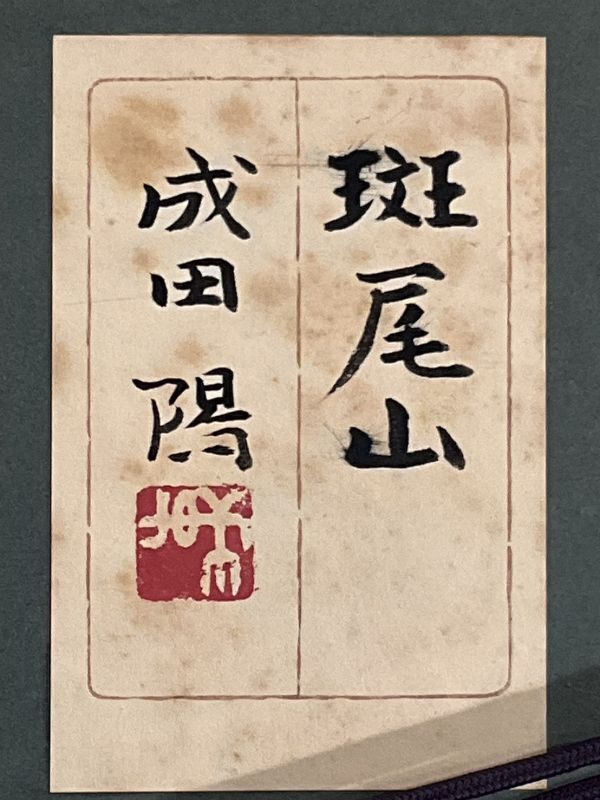 斑尾山
成田 陽